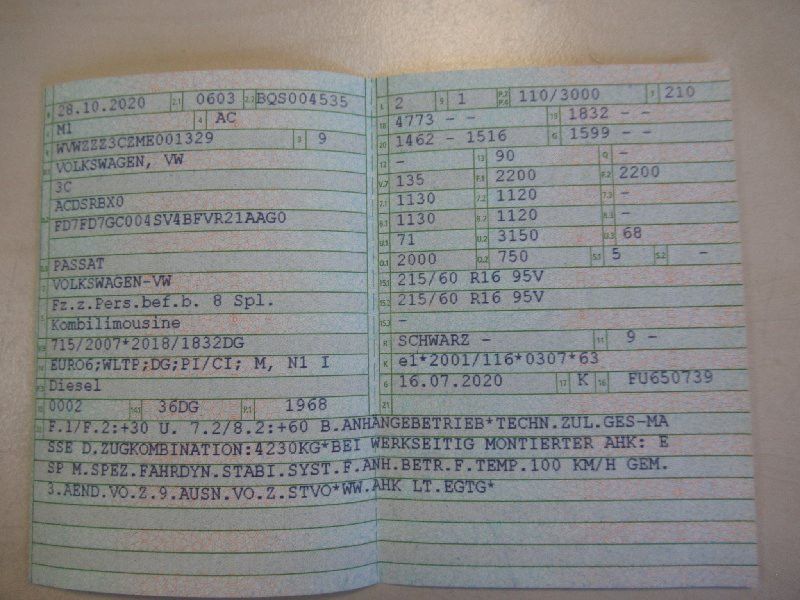 B 28.10.2020 2.1 0603 2.2 BQS004535
J M1 4 AC
E WVWZZZ3CZME001329 3 9
D.1 VOLKSWAGEN, VW
3C
D.2 ACDSRBX0
FD7FD7GC004SV4BFVR21AAG0
D.3 PASSAT
2 VOLKSWAGEN-VW
5 Fz.z.Pers.bef.b. 8 Spl.
Kombilimousine
V.9 715/2007*2018/1832DG
14 EURO6;WLTP;DG;PI/CI; M, N1 I
P.3 Diesel
10 0002 14.1 36DG P.1 1968
L 2 9 1 P.2 P.4 110/3000 T 210
18 4773 - - 19 1832 - -
20 1462 - 1516 G 1599 - -
12 - 13 90 Q -
V.7 135 F.1 2200 F.2 2200
7.1 1130 7.2 1120 7.3 -
8.1 1130 8.2 1120 8.3 -
U.1 71 U.2 3150 U.3 68
O.1 2000 O.2 750 S.1 5 S.2 -
15.1 215/60 R16 95V
15.2 215/60 R16 95V
15.3 -
R SCHWARZ - 11 9 -
K e1*2001/116*0307*63
6 16.07.2020 17 K 16 FU650739
21
22 F.1/F.2:+30 U. 7.2/8.2:+60 B.ANHÄNGEBETRIEB*TECHN.ZUL.GES-MA
SSE D.ZUGKOMBINATION:4230KG*BEI WERKSEITIG MONTIERTER AHK: E
SP M.SPEZ.FAHRDYN.STABI.SYST.F.ANH.BETR.F.TEMP.100 KM/H GEM.
3.AEND.VO.Z.9.AUSN.VO.Z.STVO*WW.AHK LT.EGTG*